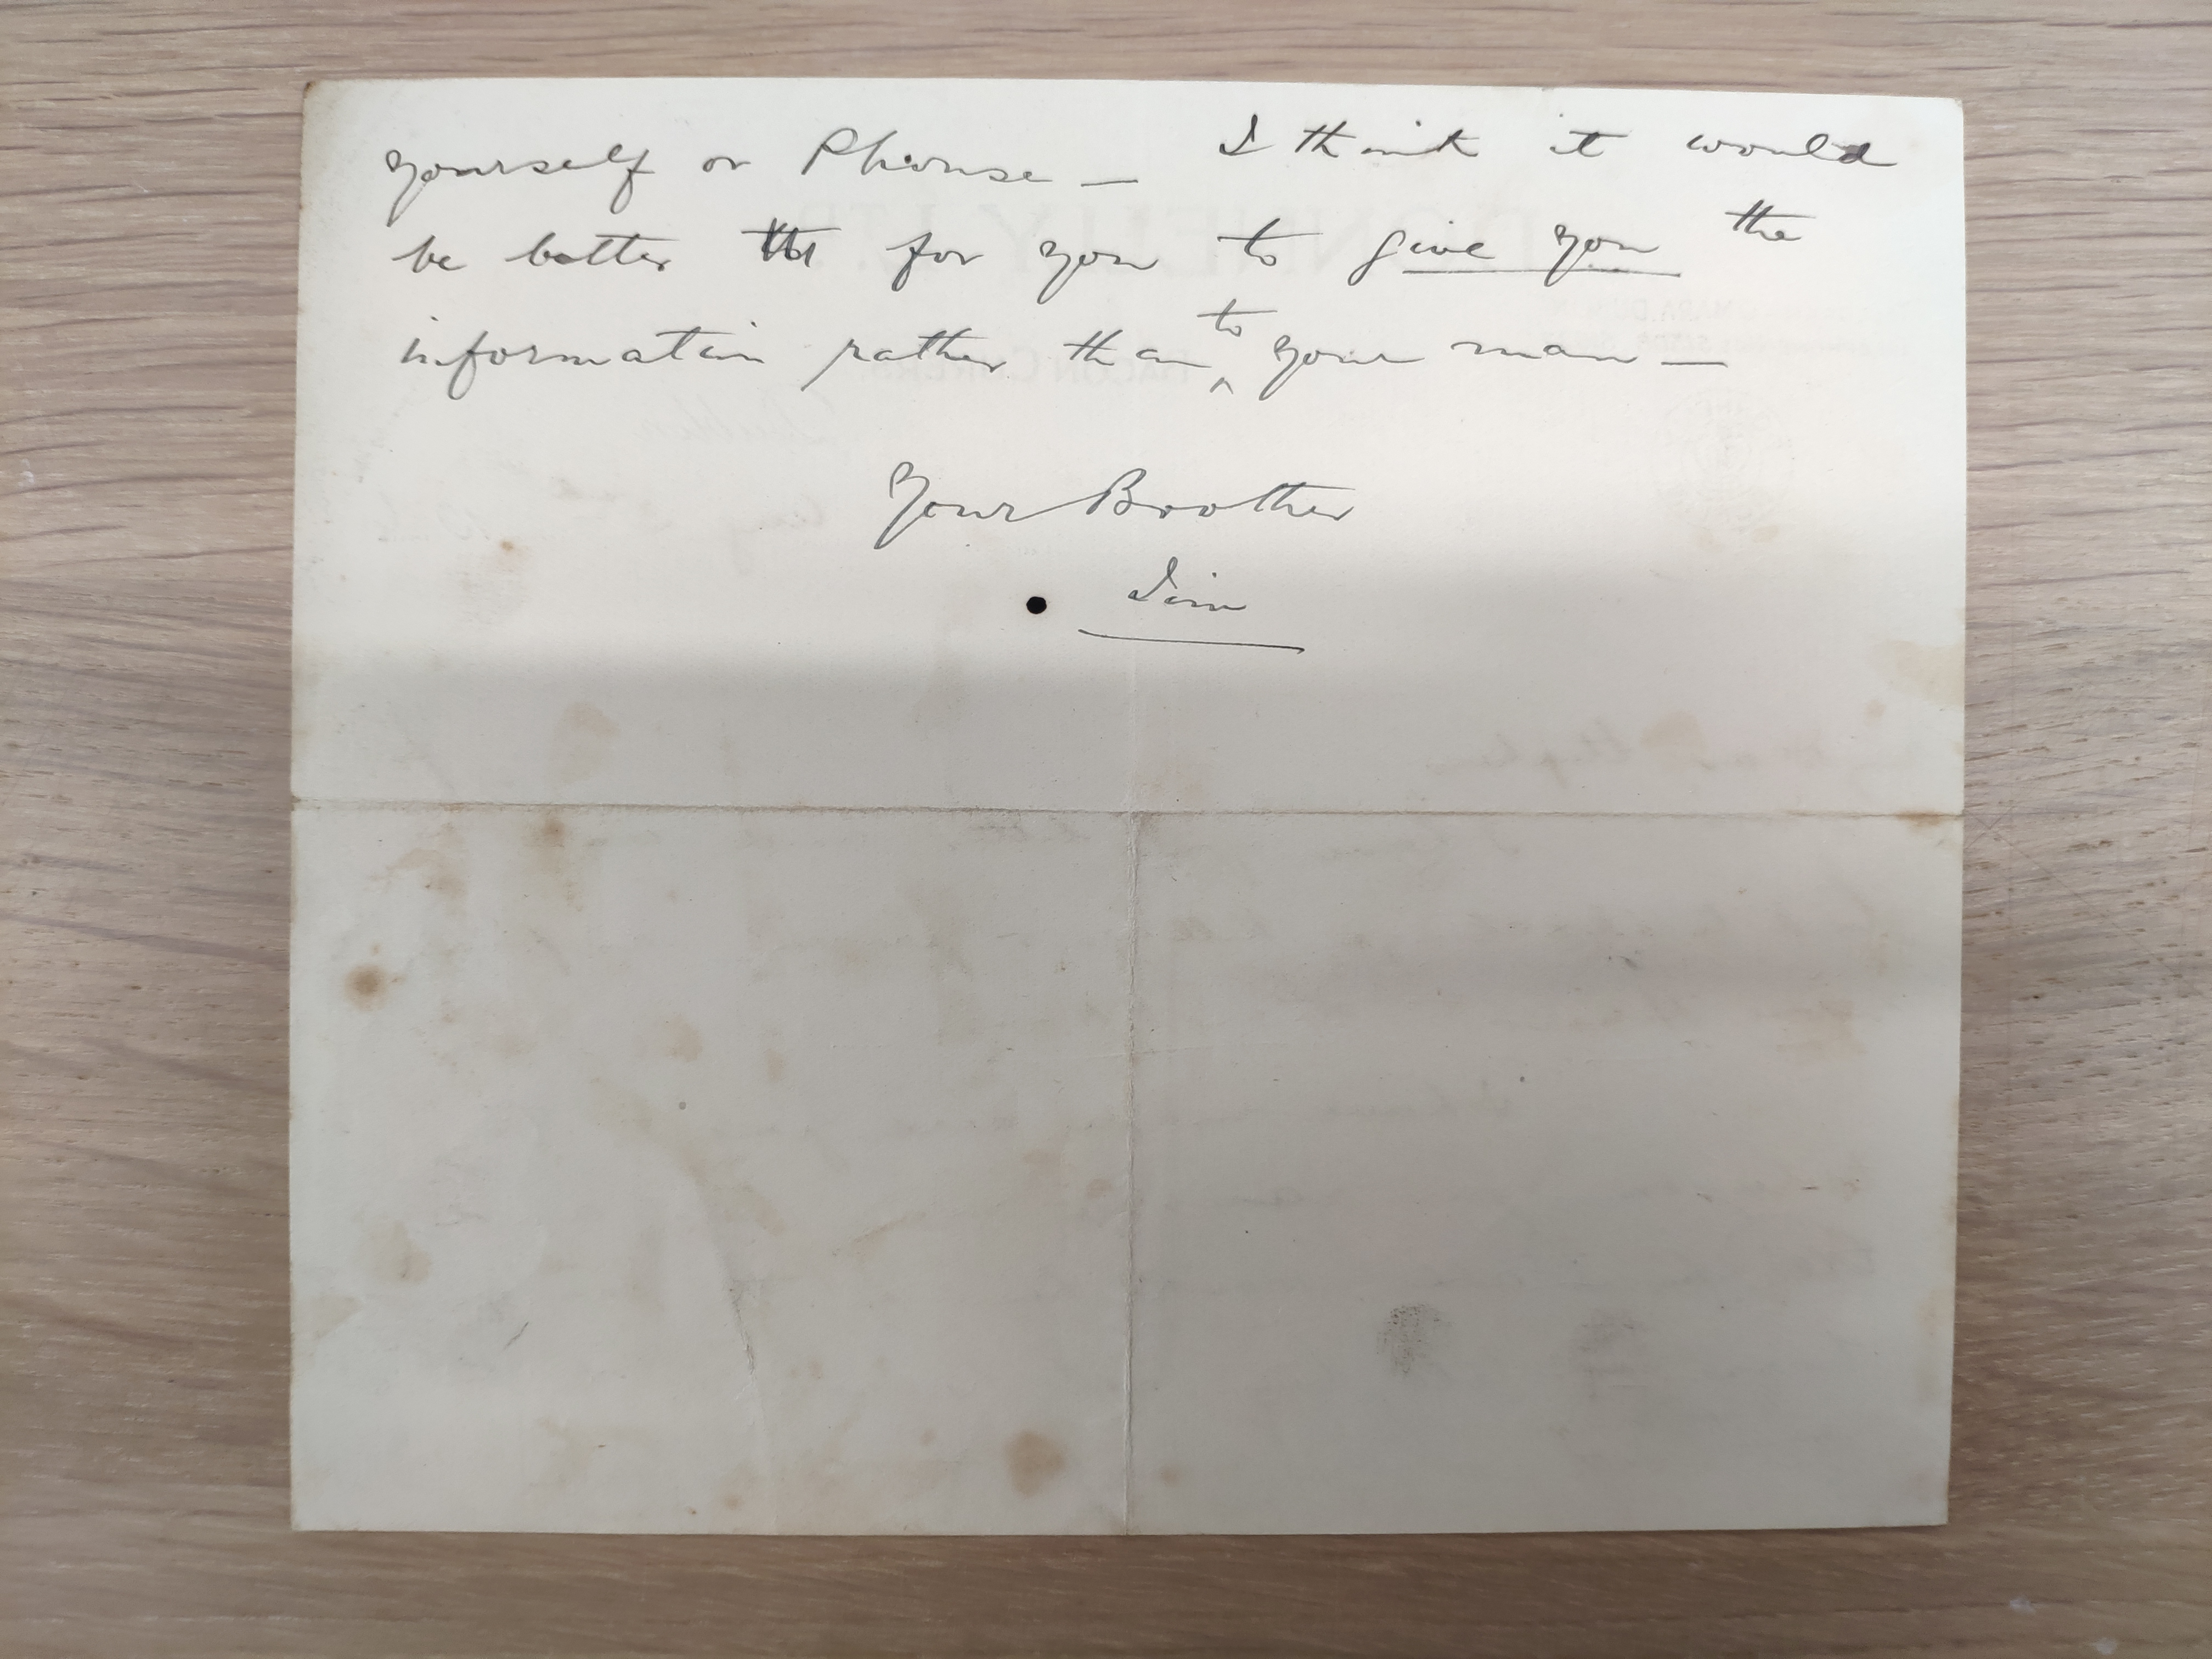 yourself or Phonse — I think it would
be better for you to give you the
information rather than to your man —
Your Brother
Jim